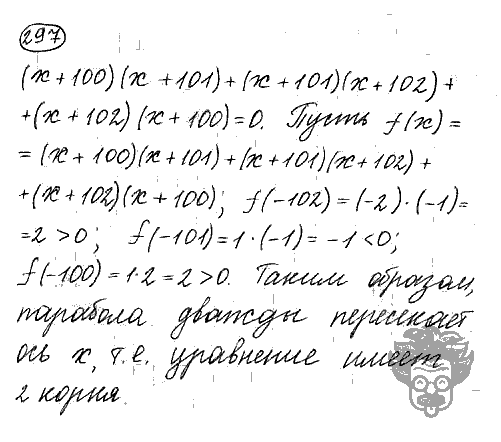 297
(x+100)(x+101)+(x+101)(x+102)+
+(x+102)(x+100)=0. Пусть f(x)=
=(x+100)(x+101)+(x+101)(x+102)+
+(x+102)(x+100); f(-102)=(-2)·(-1)=
=2>0; f(-101)=1·(-1)=-1<0;
f(-100)=1·2=2>0. Таким образом,
парабола дважды пересекает
ось x, т.е. уравнение имеет
2 корня.